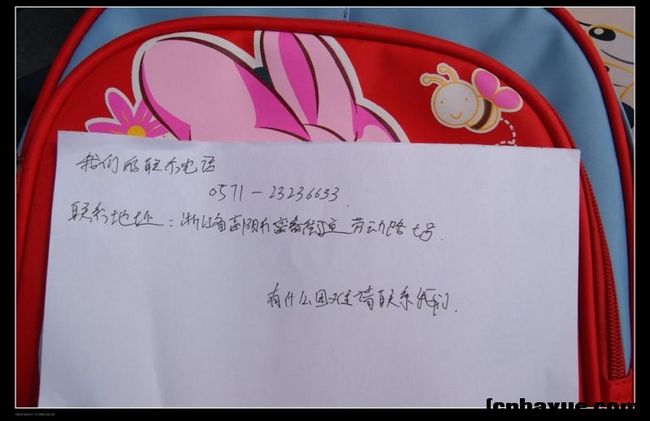 我们的联系电话
0571-23236633.
联系地址：浙江省富阳市富春街道劳动路七号.
有什么困难请联系我们.